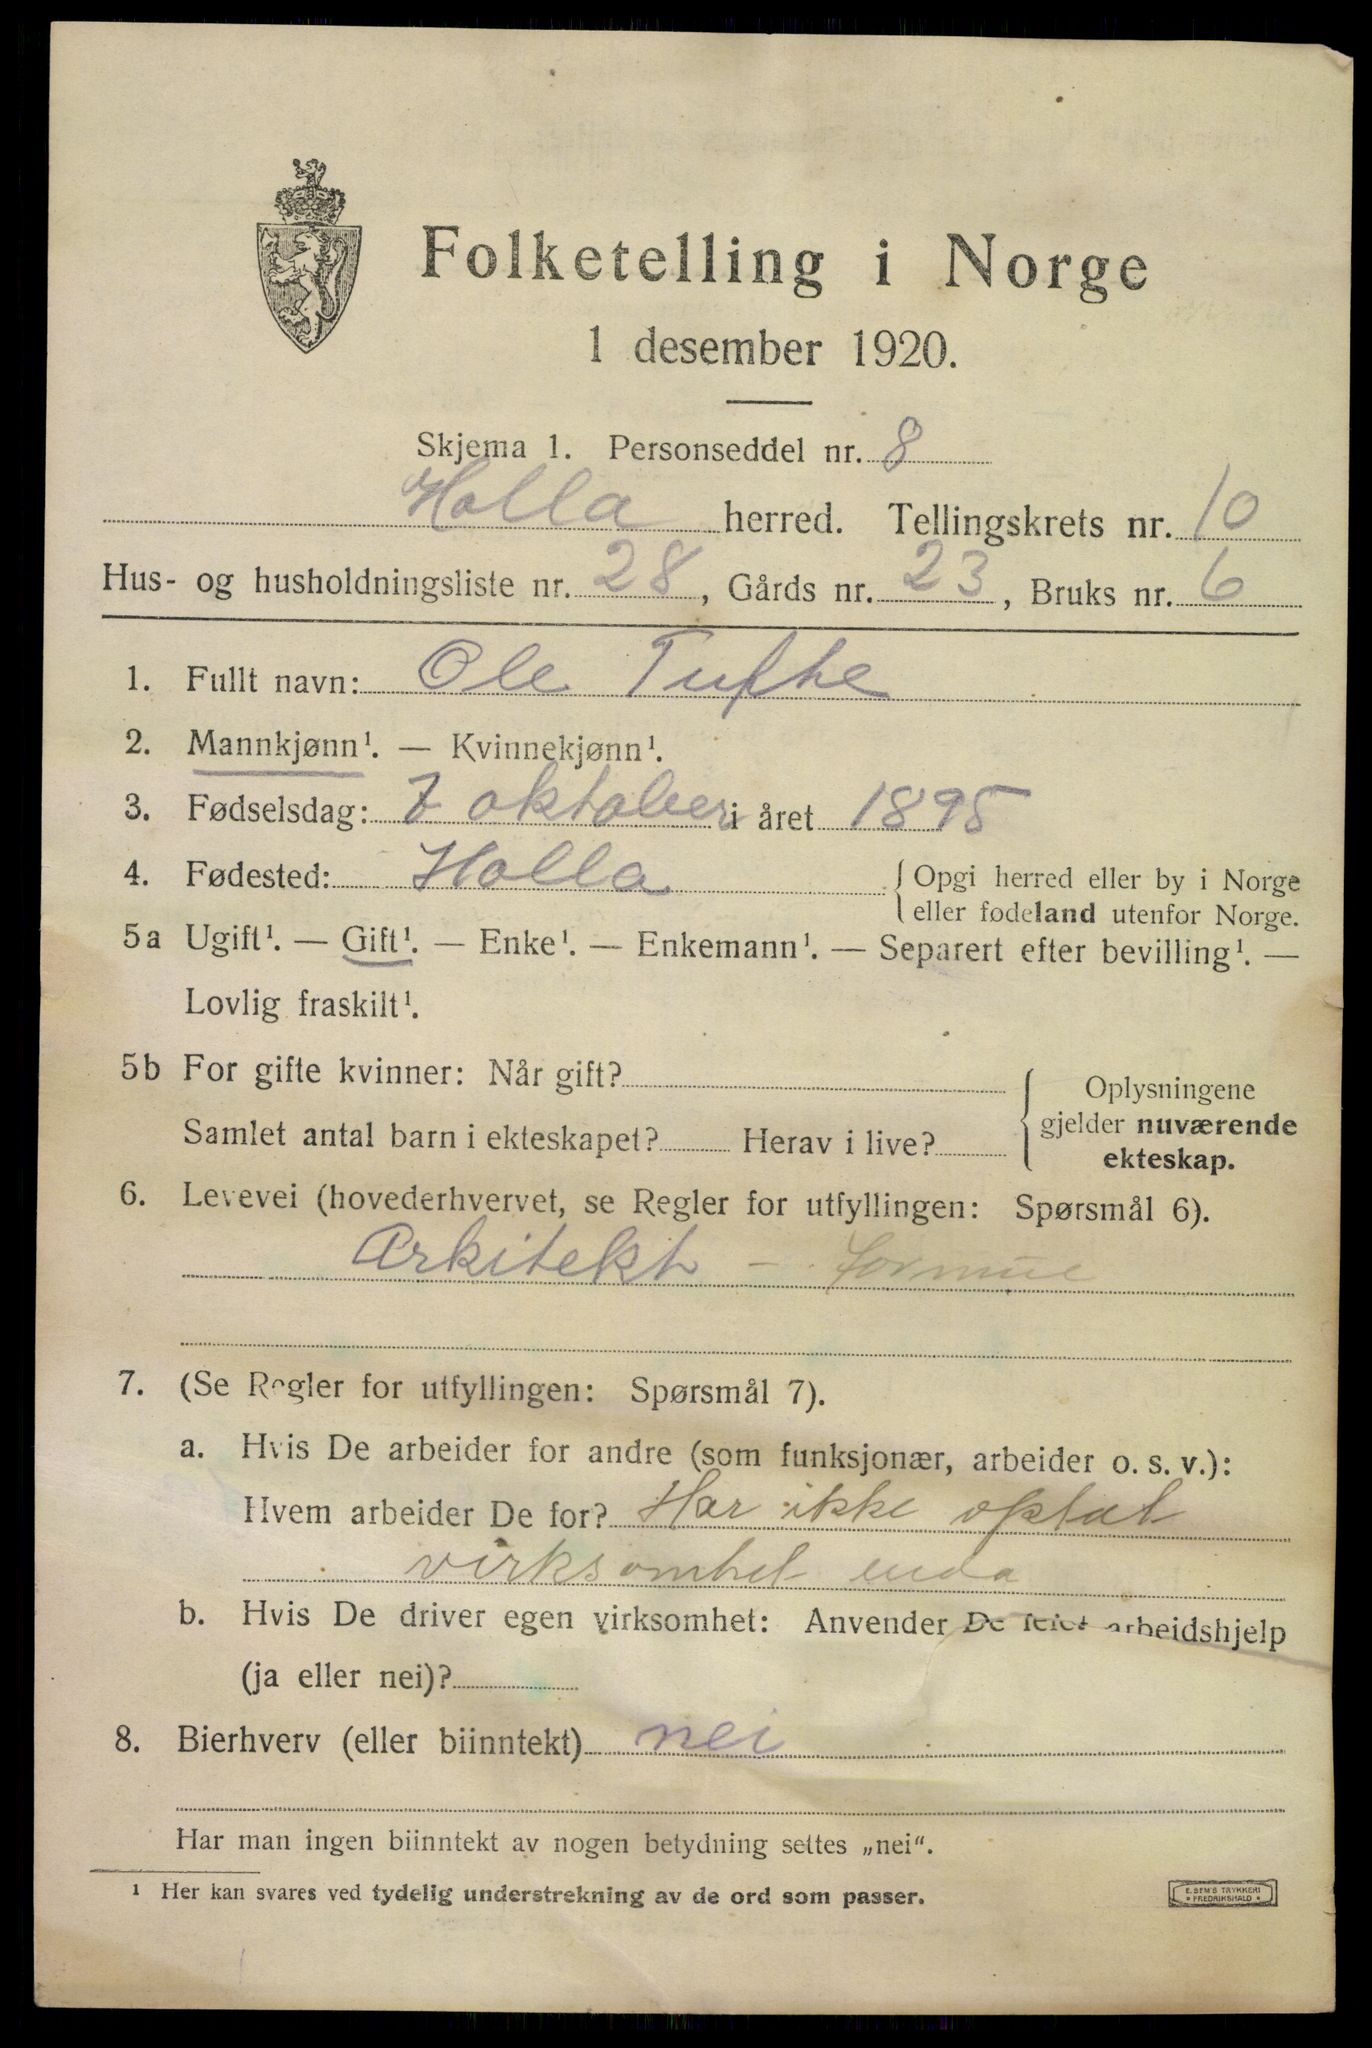 Folketelling i Norge
1 desember 1920.
Skjema 1. Personseddel nr. 8
Holla herred. Tellingskrets nr. 10
Hus- og husholdningsliste nr. 28, Gårds nr. 23, Bruks nr. 6
1. Fullt navn: Ole Tufthe
2. Mannkjønn¹. — Kvinnekjønn¹.
3. Fødselsdag: 7 oktober i året 1895
4. Fødested: Holla { Opgi herred eller by i Norge
eller fødeland utenfor Norge.
5a Ugift¹. — Gift¹. — Enke¹. — Enkemann¹. — Separert efter bevilling¹. —
Lovlig fraskilt¹.
5b For gifte kvinner: Når gift?
Samlet antal barn i ekteskapet? Herav i live?
Oplysningene
gjelder nuværende
ekteskap.
6. Levevei (hovederhvervet, se Regler for utfyllingen: Spørsmål 6).
Arkitekt - formue
7. (Se Regler for utfyllingen: Spørsmål 7).
a. Hvis De arbeider for andre (som funksjonær, arbeider o. s. v.):
Hvem arbeider De for? Har ikke optat
virksomhet enda
b. Hvis De driver egen virksomhet: Anvender De leiet arbeidshjelp
(ja eller nei)?
8. Bierhverv (eller biinntekt) nei
Har man ingen biinntekt av nogen betydning settes „nei“.
¹ Her kan svares ved tydelig understrekning av de ord som passer.
E. SEM'S TRYKKERI
FREDRIKSHALD